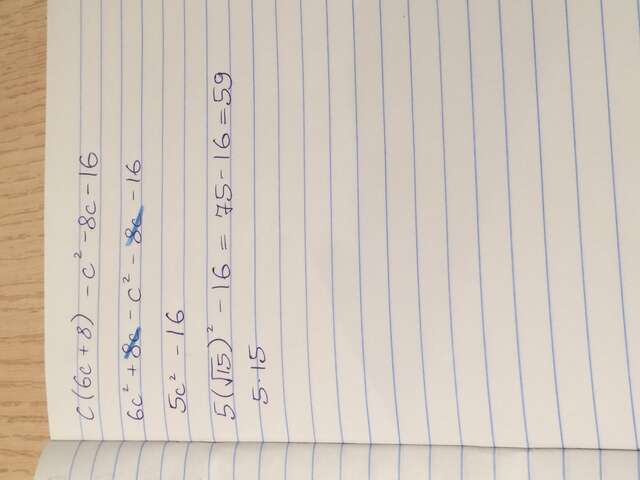 c(6c+8) - c² - 8c - 16
6c² + 8c - c² - 8c - 16
5c² - 16
5(√15)² - 16 = 75 - 16 = 59
5·15